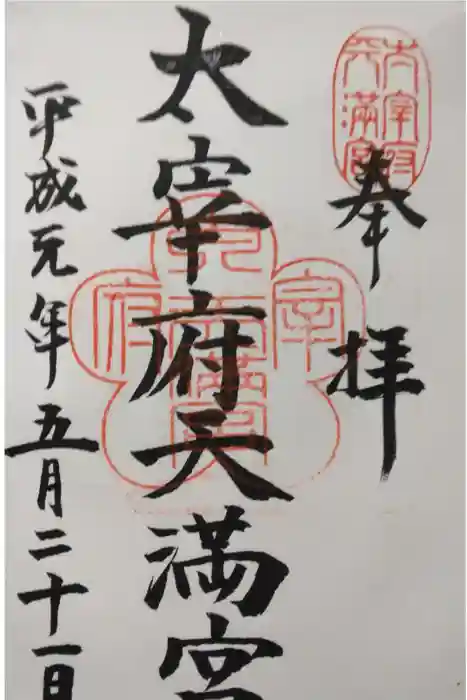 奉拝
太宰府天満宮
平成元年五月二十一日